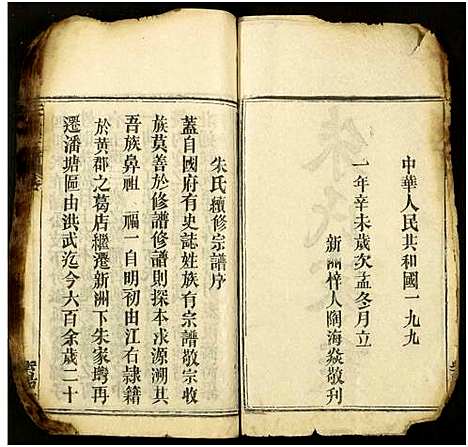 中華人民共和國一九九
一年辛未歲次孟冬月立
新洲梓人陶海焱敬刊
朱氏續修宗譜序
蓋自國府有史誌姓族有宗譜敬宗收
族莫善於修譜修則探本求源溯其
吾族鼻祖 福一自明初由江右隷籍
於黃郡之葛店繼遷新洲下朱家塆再
遷潘塘區由洪武迄今六百余歲二十